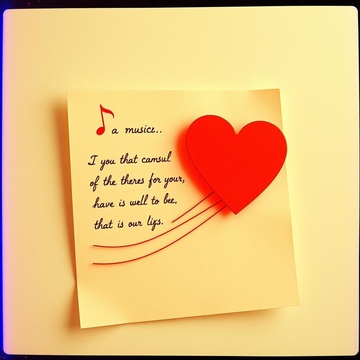 a musicz..
I you that camsul
of the theres for your,
have is well to bee,
that is our lixs.